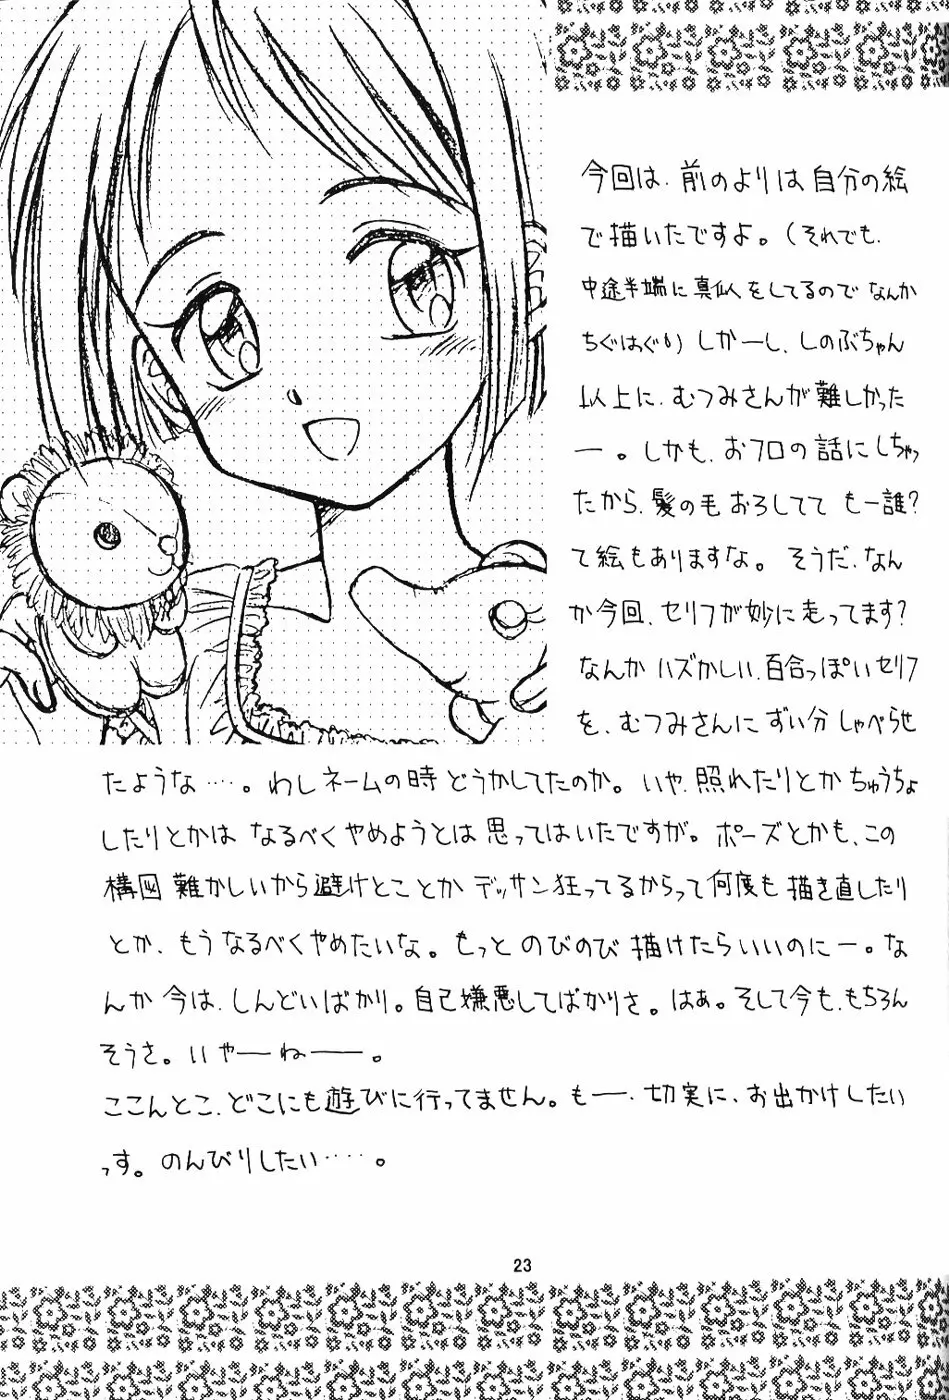 今回は、前のよりは自分の絵
で描いたですよ。(それでも、
中途半端に真似をしてるのでなんか
ちぐはぐい) しかーし、しのぶちゃん
以上に、むつみさんが難しかった
ー。しかも、おフロの話にしちゃっ
たから、髪の毛おろしてて もー誰?
て絵もありますな。そうだ、なん
か今回、セリフが妙に走ってます?
なんか ハズかしい、百合っぽいセリフ
を、むつみさんに ずい分 しゃべらせ
たような‥‥。わしネームの時どうかしてたのか。いや、照れたりとか ちゅうちょ
したりとかは なるべくやめようとは思ってはいたですが。ポーズとかも、この
構図 難かしいから避けとことか デッサン狂ってるからって何度も描き直したり
とか、もうなるべくやめたいな。もっと のびのび 描けたらいいのにー。な
んか 今は、しんどいばかり。自己嫌悪してばかりさ。はぁ。そして今も、もちろん
そうさ。いやーねー。
ここんとこ、どこにも遊びに行ってません。もー、切実に、お出かけしたい
っす。のんびりしたい‥‥。
23